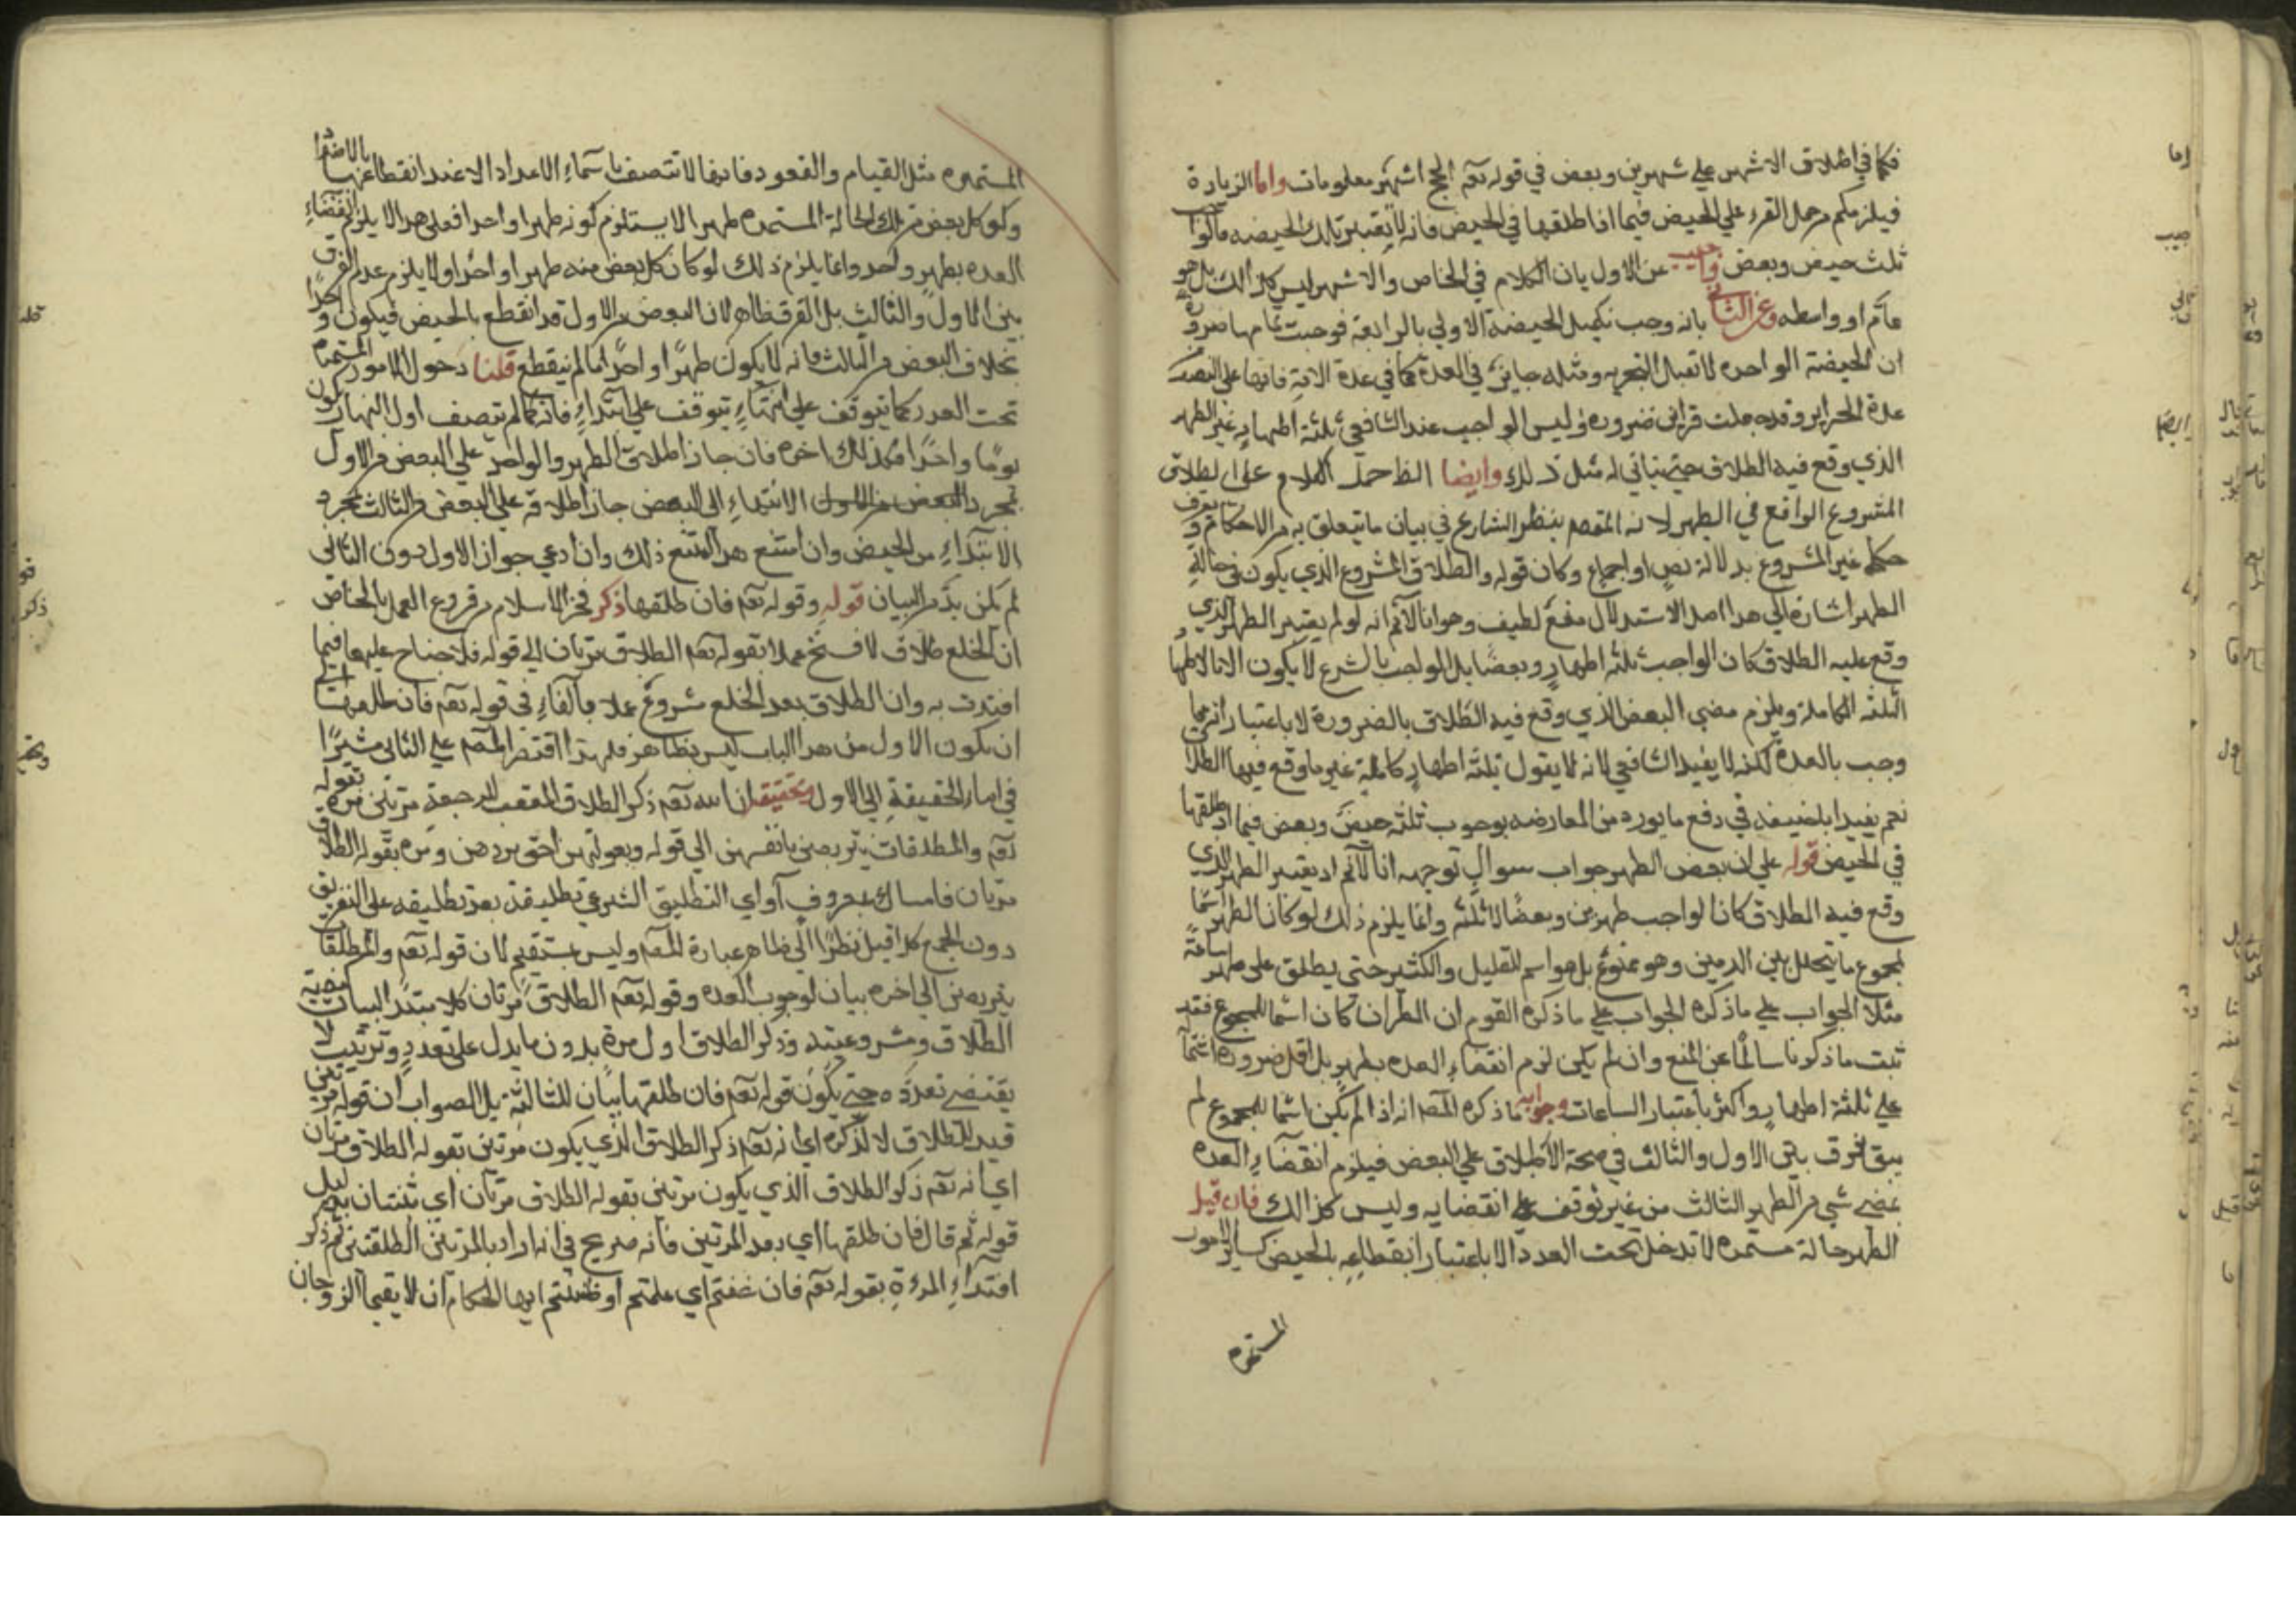 فكما في اطلاق الاشهر علي شهرين وبعض في قوله تعم الحج اشهر معلومات واما الزيادة
فيلزمكم من حمل القرء علي الحيض فيما اذا طلقها في الحيض فانه لا يعتبر تلك الحيضه فالواجب
ثلث حيض وبعض واجيب عن الاول بان الكلام في الخاص والاشهر ليس كذالك بل هو
عام او واسطه وعن الثاني بانه وجب تكميل الحيضة الاولي بالرابعة فوجبت تمامها ضرورة
ان الحيضة الواحده لا تقبل التجزيه ومثله جايز في العدة كما في عدة الامة فانها علي النصف
عدة الحراير وقد جعلت قرأين ضرورة وليس الواجب عند الشافعي ثلثة اطهار غير الطهر
الذي وقع فيه الطلاق حتي يتاتي له مثل ذلك وايضا الظ حمل الكلام علي الطلاق
المشروع الواقع في الطهر لانه المقصم بنظر الشارع في بيان ما يتعلق به من الاحكام ويعرف
حكم غير المشروع بدلالة نص او اجماع وكان قوله والطلاق المشروع الذي يكون في حالة
الطهر اشارة الي هدا اصل الاستدلال منع لطيف وهو انا لا نم انه لو لم يعتبر الطهر الذي
وقع عليه الطلاق كان الواجب ثلثه اطهار وبعضا بل الواجب بالشرع لا يكون الا الاطهار
الثلثه الكاملة ويلزم مضي البعض الذي وقع فيه الطلاق بالضرورة لا باعتبار انه مما
وجب بالعدة لكنه لا يفيد الشافعي لانه لا يقول بثلثه اطهار كاملة غير ما وقع فيها الطلاق
نعم يفيد ابا حنيفه في دفع ما يورد من المعارضه بوجوب ثلثه حيض وبعض فيما اذا طلقها
في الحيض قوله علي ان بعض الطهر جواب سوال توجيهه انا لا نم اد يعتبر الطهر الذي
وقع فيه الطلاق كان الواجب طهرين وبعضا لا ثلثه وانما يلزم ذلك لو كان الطهر اسما
لمجموع ما يتخلل بين الدمين وهو ممنوع بل هو اسم للقليل والكثير حتي يطلق علي طهر ساعة
مثلا الجواب علي ما ذكره الجواب علي ما ذكره القوم ان الطران كان اسما للمجموع فقد
ثبت ما ذكرنا سالما عن المنع وان لم يكن لزم انقضاء العده بطهر بل اقل ضرورة اشتماله
علي ثلثة اطهار واكثر باعتبار الساعات وجوابه ما ذكره المصم انه اذا لم يكن اسما للمجموع لم
يبق فرق بين الاول والثالث في صحة الاطلاق علي البعض فيلزم انقضاء العده
بمضي شي من الطهر الثالث من غير توقف علي انقضايه وليس كذالك فان قيل
الطهر حالة مستمره لا تدخل تحت العدد الا باعتبار انقطاعه بالحيض كساير الامور
المستمره
المستمره مثل القيام والقعود فانها لا تتصف باسماء الاعداد الا عند انقطاعها بالاضداد
وكون كل بعض من تلك الحالة المستمره طهرا لا يستلزم كونه طهرا واحدا فعلي هدا لا يلزم انقضاء
العده بطهر واحد وانما يلزم ذلك لو كان كل بعض منه طهرا واحدا ولا يلزم عدم الفرق
بين الاول والثالث بل الفرق ظاهر لان البعض من الاول قد انقطع بالحيض فيكون واحدا
بخلاف البعض من الثالث فانه لا يكون طهرا واحدا ما لم ينقطع قلنا دخول الامور المستمرة
تحت العدد كما يتوقف علي انتهاء يتوقف علي ابتداء فانه كما لم يتصف اول النهار بكون
يوما واحدا فكذلك اخره فان جاز اطلاق الطهر والواحد علي البعض من الاول
بمجرد البعض من الاول الانتهاء الي البعض جاز اطلاقه علي البعض من الثالث بمجرد
الابتداء من الحيض وان امتنع هدا امتنع ذلك وان ادعي جواز الاول دون الثاني
لم يكن بد من البيان قوله وقوله تعم فان طلقها ذكر فخر الاسلام من فروع العمل بالخاص
ان الخلع طلاق لا فسخ عملا بقوله تعم الطلاق مرتان الي قوله فلا جناح عليهما فيما
افتدت به وان الطلاق بعد الخلع مشروع عملا بالفاء في قوله تعم فان طلقها
ان يكون الاول من هدا الباب ليس بظاهر فلهدا اقتصر المصم علي الثاني مشيرا
في اصار الحقيقة الي الاول وتحقيقه ان الله تعم ذكر الطلاق المعقب للرجعة مرتين مرة بقوله
تعم والمطلقات يتربصن بانفسهن الي قوله وبعولتهن احق بردهن ومره بقوله الطلاق
مرتان فامساك بمعروف آو اي التطليق الشرعي تطليقة بعد تطليقه علي التفريق
دون الجمع كذا قيل نظرا الي ظاهر عبارة المصم وليس بمستقيم لان قوله تعم والمطلقات
يتربصن الي اخره بيان لوجوب العده وقوله تعم الطلاق مرتان كلام مبتدا لبيان كيفية
الطلاق ومشروعيته وذكر الطلاق اول مرة بدون ما يدل علي تعدد وترتيب لا
يقتضي تعدده حتي يكون قوله تعم فان طلقها بيان للثالثه بل الصواب ان قوله مرتين
قيد للطلاق لا لذكره اي انه تعم ذكر الطلاق الذي يكون مرتين بقوله الطلاق مرتان
اي انه تعم ذكر الطلاق الذي يكون مرتين بقوله الطلاق مرتان اي ثنتان بدليل
قوله ثم قال فان طلقها اي بعد المرتين فانه صريح في انه اراد بالمرتين الطلقتين ثم ذكر
افتداء المرءة بقوله تعم فان خفتم اي علمتم او ظننتم ايها الحكام ان لا يقيما الزوجان